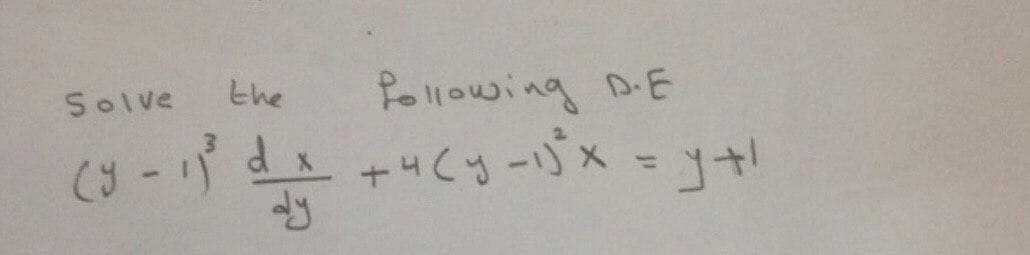 Solve the following D.E
(y - 1)³ dx/dy + 4(y - 1)² x = y + 1